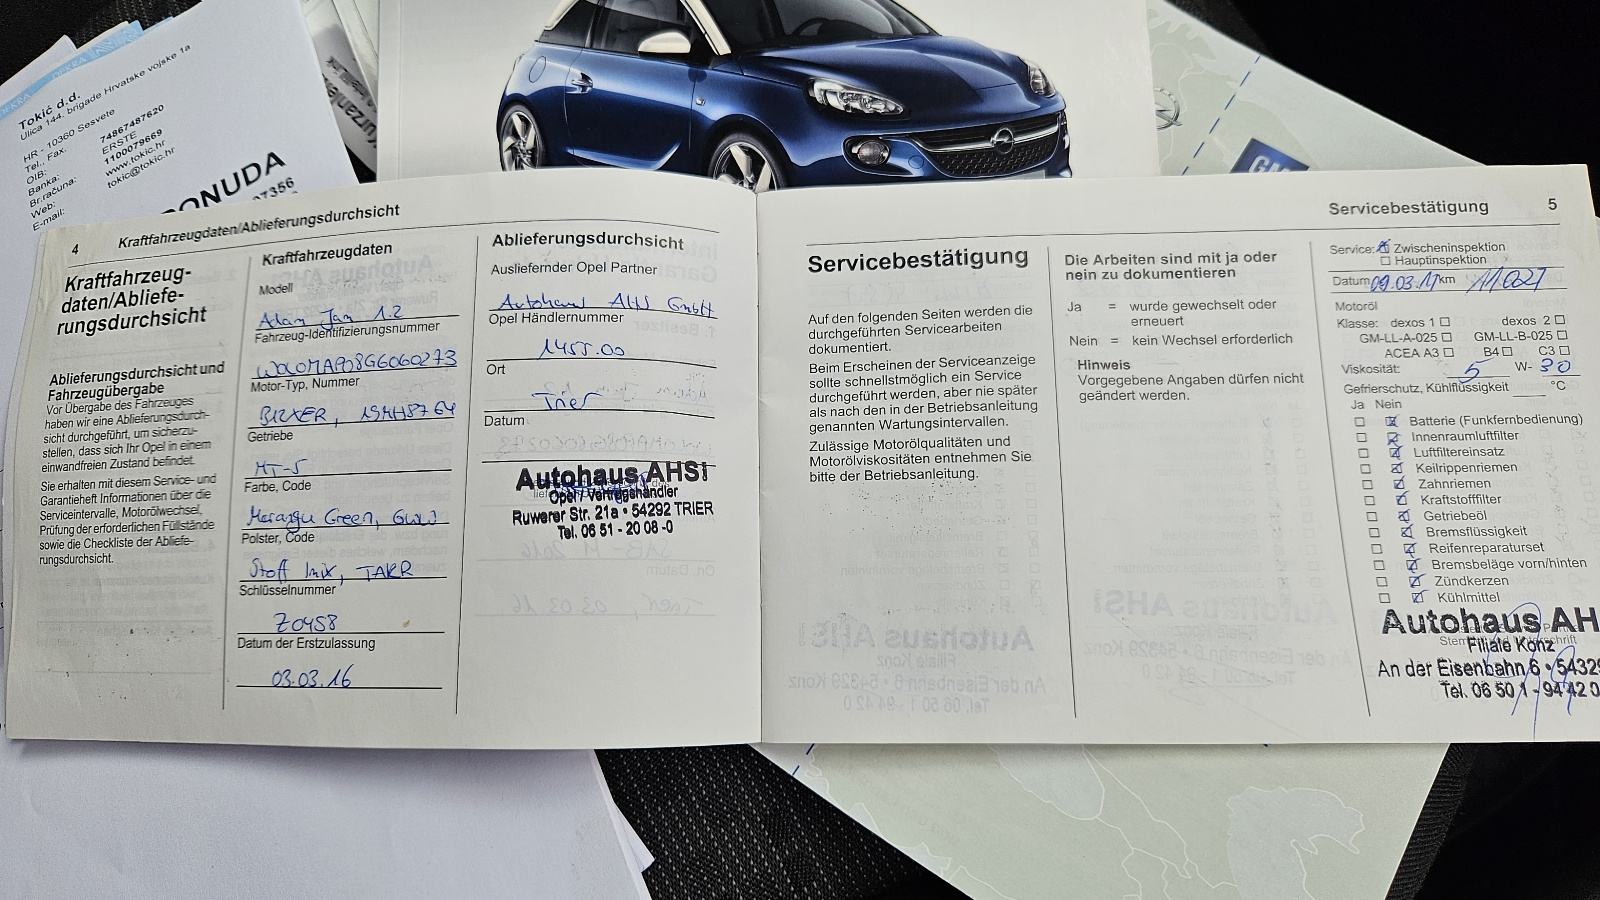 DEKRA
Tokić d.d.
Ulica 144. brigade Hrvatske vojske 1a
HR - 10360 Sesvete
Tel., Fax.
OIB: 74867487620
Banka: ERSTE
Br.računa: 1100079669
Web: www.tokic.hr
E-mail: tokic@tokic.hr
PONUDA
07356
GM
4 Kraftfahrzeugdaten/Ablieferungsdurchsicht
Kraftfahrzeug-
daten/Abliefe-
rungsdurchsicht
Ablieferungsdurchsicht und
Fahrzeugübergabe
Vor Übergabe des Fahrzeuges
haben wir eine Ablieferungsdurch-
sicht durchgeführt, um sicherzu-
stellen, dass sich Ihr Opel in einem
einwandfreien Zustand befindet.
Sie erhalten mit diesem Service- und
Garantieheft Informationen über die
Serviceintervalle, Motorölwechsel,
Prüfung der erforderlichen Füllstände
sowie die Checkliste der Abliefe-
rungsdurchsicht.
Kraftfahrzeugdaten
Modell
Adam Jam 1.2
Fahrzeug-Identifizierungsnummer
W0L0MAP08G6060273
Motor-Typ, Nummer
B12XER, 19MH8764
Getriebe
MT-5
Farbe, Code
Green,
Polster, Code
Stoff Inix, TAKR
Schlüsselnummer
Z0458
Datum der Erstzulassung
03.03.16
Ablieferungsdurchsicht
Ausliefernder Opel Partner
Autohaus AHS GmbH
Opel Händlernummer
1455.00
Ort
Trier
Datum
Autohaus AHS!
Opel / Vertragshändler
Ruwerer Str. 21a • 54292 TRIER
Tel. 06 51 - 20 08 -0
Servicebestätigung 5
Servicebestätigung
Auf den folgenden Seiten werden die
durchgeführten Servicearbeiten
dokumentiert.
Beim Erscheinen der Serviceanzeige
sollte schnellstmöglich ein Service
durchgeführt werden, aber nie später
als nach den in der Betriebsanleitung
genannten Wartungsintervallen.
Zulässige Motorölqualitäten und
Motorölviskositäten entnehmen Sie
bitte der Betriebsanleitung.
Die Arbeiten sind mit ja oder
nein zu dokumentieren
Ja = wurde gewechselt oder
erneuert
Nein = kein Wechsel erforderlich
Hinweis
Vorgegebene Angaben dürfen nicht
geändert werden.
Service: Zwischeninspektion
Hauptinspektion
Datum 09.03.17 km 11027
Motoröl
Klasse: dexos 1 dexos 2
GM-LL-A-025 GM-LL-B-025
ACEA A3 B4 C3
Viskosität: 5 W- 30
Gefrierschutz, Kühlflüssigkeit °C
Ja Nein
Batterie (Funkfernbedienung)
Innenraumluftfilter
Luftfiltereinsatz
Keilrippenriemen
Zahnriemen
Kraftstofffilter
Getriebeöl
Bremsflüssigkeit
Reifenreparaturset
Bremsbeläge vorn/hinten
Zündkerzen
Kühlmittel
Autohaus AH
Filiale Konz
An der Eisenbahn 6 • 5432
Tel. 06 50 1 - 94 42 0